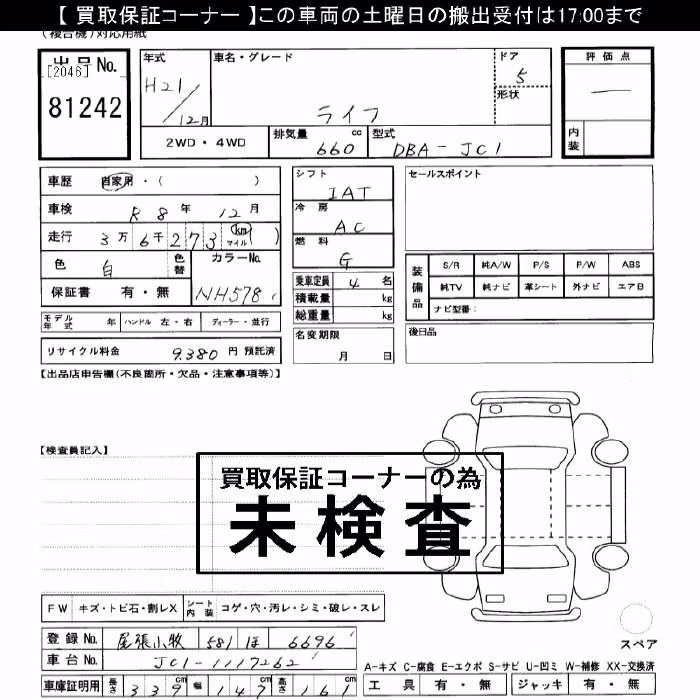 【 買取保証コーナー 】この車両の土曜日の搬出受付は17:00まで
(複合機)対応用紙
出品No.
[2046]
81242
年式
H21/12月
車名・グレード
ライフ
ドア
5
形状
評価点
—
内装
2WD・4WD
排気量 660 cc
型式 DBA-JC1
車歴 自家用・( )
車検 R8年12月
走行 3万6千273 (km マイル)
色 白 色替
カラーNo. NH578
保証書 有・無
シフト IAT
冷房 AC
燃料 G
乗車定員 4 名
積載量 kg
総重量 kg
セールスポイント
装備品
S/R 純A/W P/S P/W ABS
純TV 純ナビ 革シート 外ナビ エアB
ナビ型番:
モデル年式 年 ハンドル 左・右 ディーラー・並行
名変期限 月 日
後日品
リサイクル料金 9.380 円 預託済
【出品店申告欄(不良箇所・欠品・注意事項等)】
【検査員記入】
買取保証コーナーの為
未検査
FW キズ・トビ石・割レX シート内装 コゲ・穴・汚レ・シミ・破レ・スレ
登録No. 尾張小牧 581 ほ 6696
車台No. JC1-1117262
車庫証明用 長さ 339cm 幅 147cm 高さ 161cm
スペア
A-キズ C-腐食 E-エクボ S-サビ U-凹ミ W-補修 XX-交換済
工具 有・無 ジャッキ 有・無